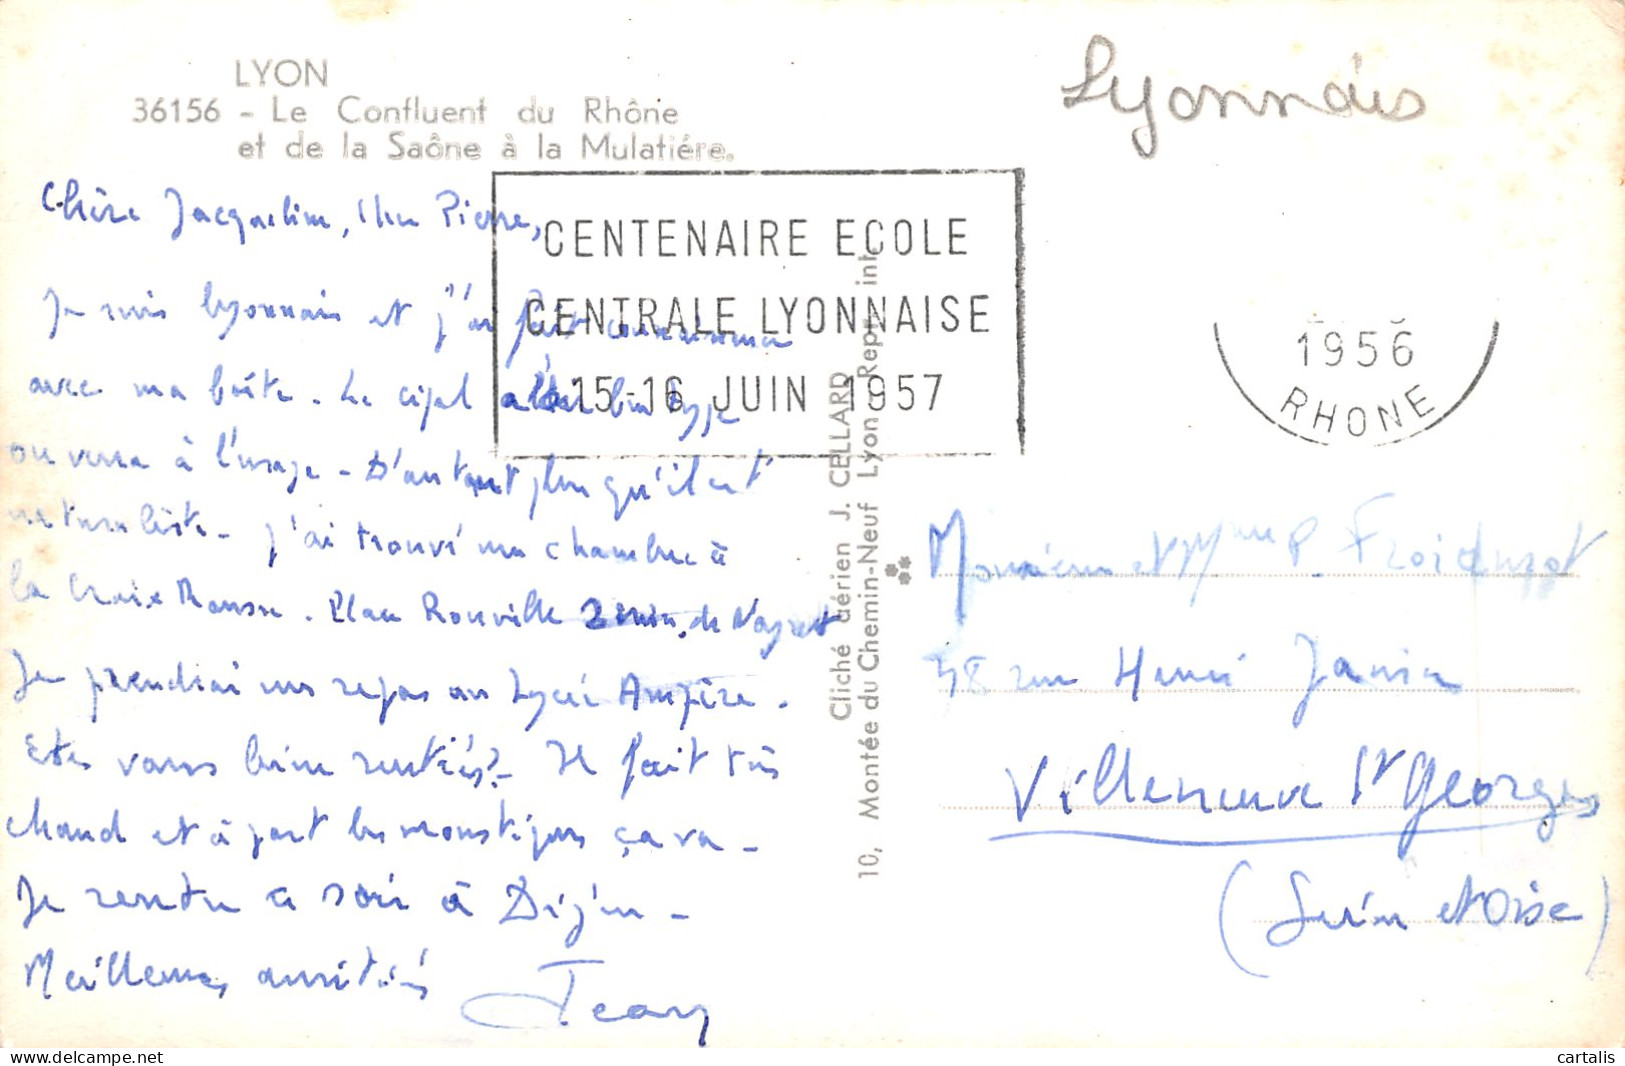 LYON
36156 - Le Confluent du Rhône
et de la Saône à la Mulatiére.
Lyonnais
CENTENAIRE ECOLE
CENTRALE LYONNAISE
15-16 JUIN 1957
1956
RHONE
Chère Jacqueline, Cher Pierre,
Je suis lyonnais et j'ai fait connaissance
avec ma boîte. Le cipal a l'air bon type
on verra à l'usage - D'autant plus qu'il est
naturaliste - J'ai trouvé une chambre à
la Croix Rousse. Place Rouville
Je prendrai mes repas au Lycée Ampère.
Etes vous bien rentrés? - Il fait très
chaud et à part les moustiques ça va -
Je rentre ce soir à Dijon -
Meilleures amitiés
Jean
Cliché aérien J. CELLARD
10, Montée du Chemin-Neuf Lyon Repr. int.
Monsieur et Mme P.
48 rue Henri Janin
Villeneuve St Georges
(Seine et Oise)
cartalis